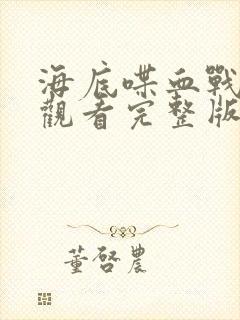 海底喋血戰
觀看完整版
董啓農